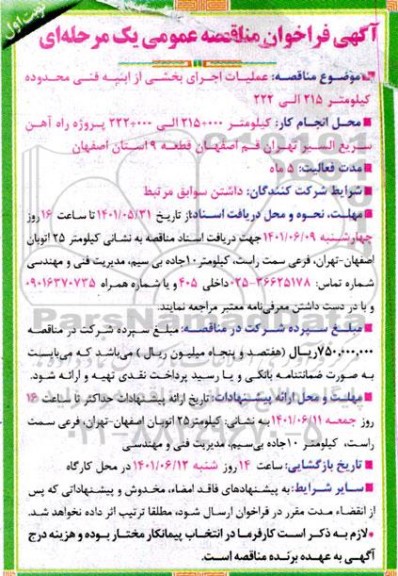 نوبت اول
آگهی فراخوان مناقصه عمومی یک مرحله‌ای
موضوع مناقصه: عملیات اجرای بخشی از ابنیه فنی محدوده
کیلومتر ۲۱۵ الی ۲۲۲
محل انجام کار: کیلومتر ۲۱۵+۰۰۰ الی ۲۲۲+۰۰۰ پروژه راه آهن
سریع السیر تهران قم اصفهان قطعه ۹ استان اصفهان
مدت فعالیت: ۵ ماه
شرایط شرکت کنندگان: داشتن سوابق مرتبط
مهلت، نحوه و محل دریافت اسناد: از تاریخ ۱۴۰۱/۰۵/۳۱ تا ساعت ۱۶ روز
چهارشنبه ۱۴۰۱/۰۶/۰۹ جهت دریافت اسناد مناقصه به نشانی کیلومتر ۲۵ اتوبان
اصفهان-تهران، فرعی سمت راست، کیلومتر ۱۰ جاده بی سیم، مدیریت فنی و مهندسی
شماره تماس: ۳۶۶۲۵۱۷۸-۰۲۵ داخلی ۴۰۵ و یا شماره همراه ۰۹۰۱۶۳۷۰۷۳۵
و با در دست داشتن معرفی‌نامه معتبر مراجعه نمایند.
مبلغ سپرده شرکت در مناقصه: مبلغ سپرده شرکت در مناقصه
۷۵۰,۰۰۰,۰۰۰ ریال (هفتصد و پنجاه میلیون ریال) می‌باشد که می‌بایست
به صورت ضمانتنامه بانکی و یا رسید پرداخت نقدی تهیه و ارائه شود.
مهلت و محل ارائه پیشنهادات: تاریخ ارائه پیشنهادات حداکثر تا ساعت ۱۶
روز جمعه ۱۴۰۱/۰۶/۱۱ به نشانی: کیلومتر ۲۵ اتوبان اصفهان-تهران، فرعی سمت
راست، کیلومتر ۱۰ جاده بی‌سیم، مدیریت فنی و مهندسی
تاریخ بازگشایی: ساعت ۱۴ روز شنبه ۱۴۰۱/۰۶/۱۲ در محل کارگاه
سایر شرایط: به پیشنهادهای فاقد امضاء، مخدوش و پیشنهاداتی که پس
از انقضاء مدت مقرر در فراخوان ارسال شود، مطلقا ترتیب اثر داده نخواهد شد.
لازم به ذکر است کارفرما در انتخاب پیمانکار مختار بوده و هزینه درج
آگهی به عهده برنده مناقصه است.
ParsNamadData